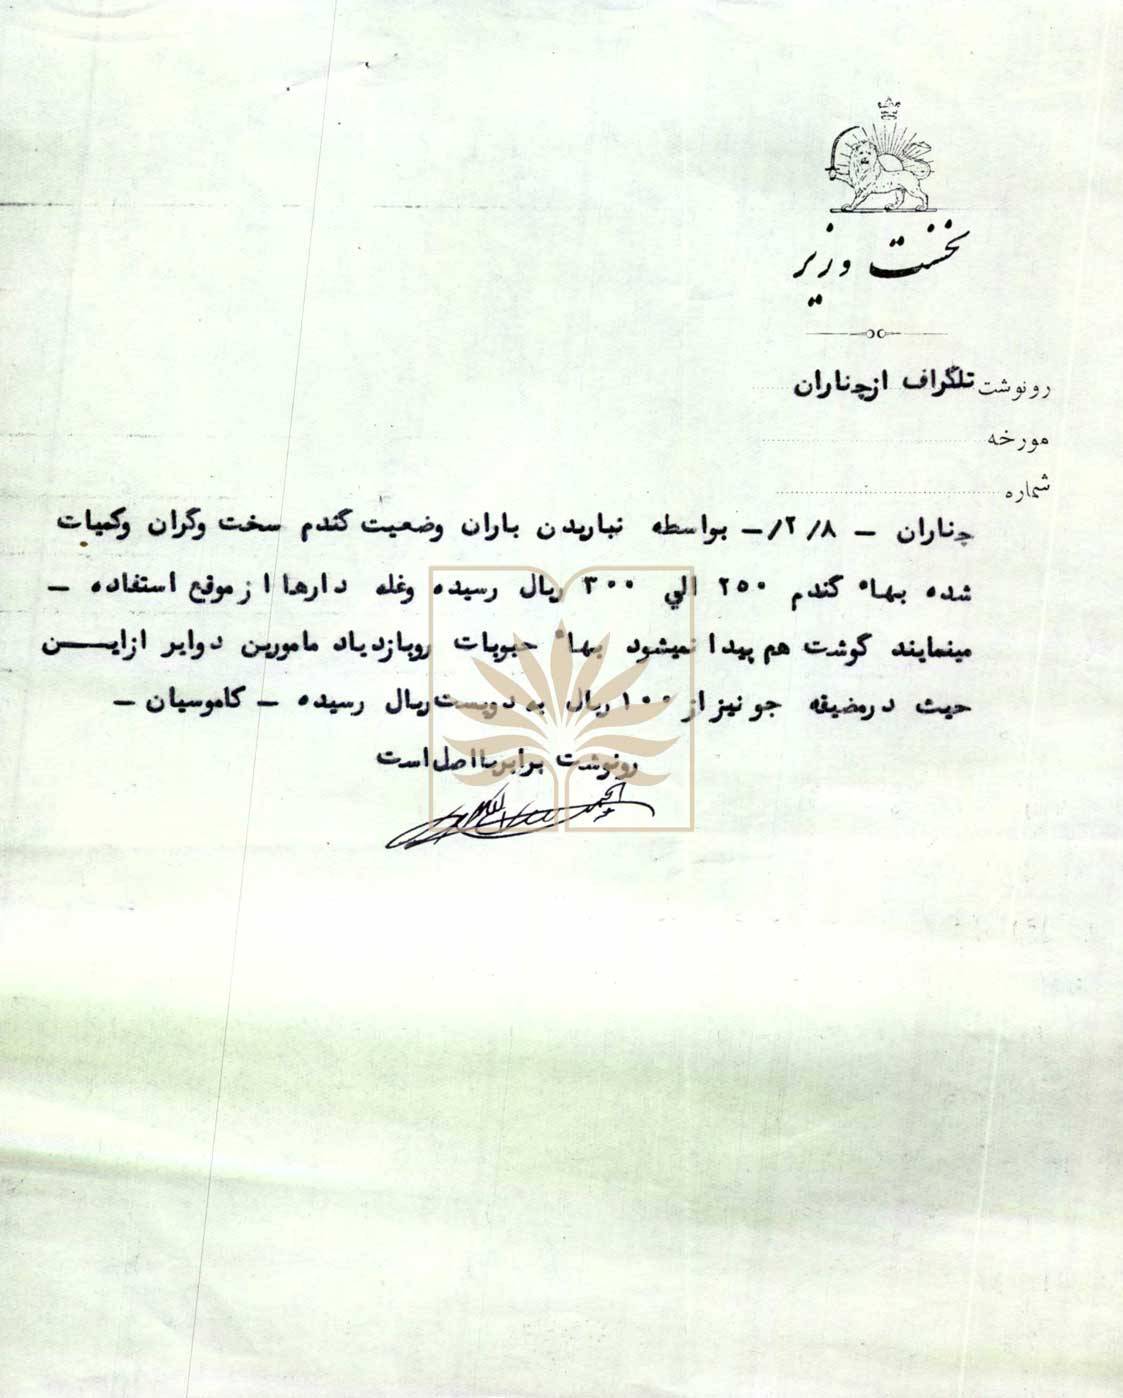 نخست وزیر
رونوشت تلگراف از چناران
مورخه
شماره
چناران – ۲/۸/– بواسطه نباریدن باران وضعیت گندم سخت وگران وکمیات
شده بهاء گندم ۲۵۰ الی ۳۰۰ ریال رسیده وغله دارها از موقع استفاده –
مینمایند گوشت هم پیدا نمیشود بهاء حبوبات روبازدیاد مامورین دوایر ازایـــن
حیث درمضیقه جو نیز از ۱۰۰ ریال به دویست ریال رسیده – کاموسیان –
رونوشت برابر بااصل است